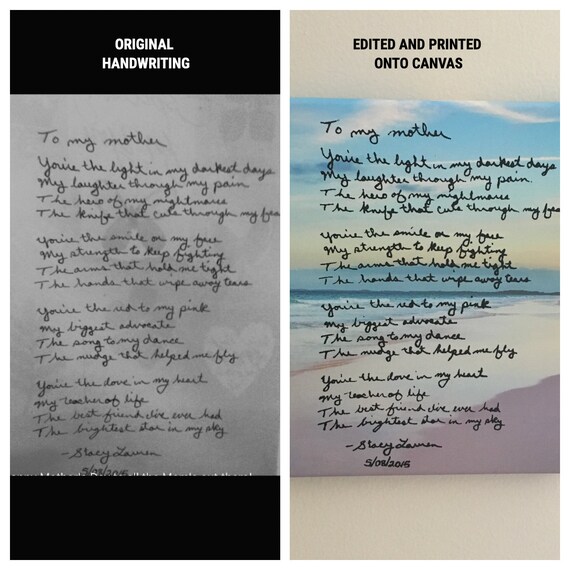 ORIGINAL
HANDWRITING
To my mother
You're the light in my darkest days
My laughter through my pain
The hero of my nightmares
The knife that cuts through my fea
You're the smile on my face
My strength to keep fighting
The arms that hold me tight
The hands that wipe away tears
You're the red to my pink
My biggest advocate
The song to my dance
The nudge that helped me fly
You're the love in my heart
My teacher of life
The best friend I've ever had
The brightest star in my sky
- Stacy Lauren
5/08/2015
EDITED AND PRINTED
ONTO CANVAS
To my mother
You're the light in my darkest days
My laughter through my pain
The hero of my nightmares
The knife that cuts through my fea
You're the smile on my face
My strength to keep fighting
The arms that hold me tight
The hands that wipe away tears
You're the red to my pink
My biggest advocate
The song to my dance
The nudge that helped me fly
You're the love in my heart
My teacher of life
The best friend I've ever had
The brightest star in my sky
- Stacy Lauren
5/08/2015